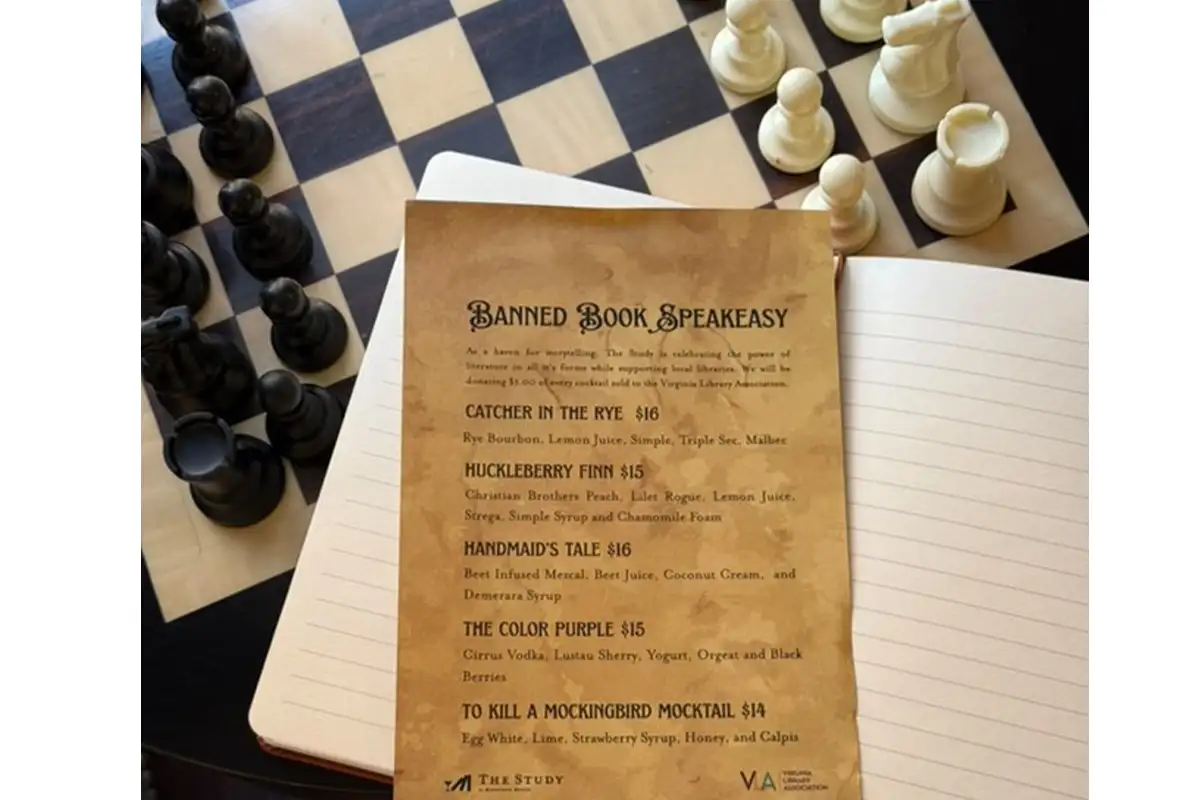 BANNED BOOK SPEAKEASY
As a haven for storytelling, The Study is celebrating the power of
literature in all it's forms while supporting local libraries. We will be
donating $1.00 of every cocktail sold to the Virginia Library Association.
CATCHER IN THE RYE $16
Rye Bourbon, Lemon Juice, Simple, Triple Sec, Malbec
HUCKLEBERRY FINN $15
Christian Brothers Peach, Lilet Rogue, Lemon Juice,
Strega, Simple Syrup and Chamomile Foam
HANDMAID'S TALE $16
Beet Infused Mezcal, Beet Juice, Coconut Cream, and
Demerara Syrup
THE COLOR PURPLE $15
Cirrus Vodka, Lustau Sherry, Yogurt, Orgeat and Black
Berries
TO KILL A MOCKINGBIRD MOCKTAIL $14
Egg White, Lime, Strawberry Syrup, Honey, and Calpis
THE STUDY
VLA VIRGINIA
LIBRARY
ASSOCIATION